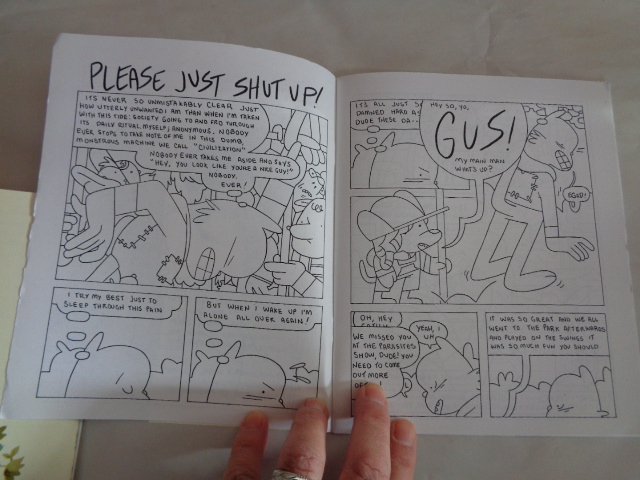 PLEASE JUST SHUT UP!
ITS NEVER SO UNMISTAKABLY CLEAR JUST
HOW UTTERLY UNWANTED I AM THAN WHEN I'M TAKEN
WITH THIS TIDE: SOCIETY GOING TO AND FRO THROUGH
ITS DAILY RITUAL. MYSELF; ANONYMOUS. NOBODY
EVER STOPS TO TAKE NOTE OF ME IN THIS DUMB,
MONSTROUS MACHINE WE CALL "CIVILIZATION"
NOBODY EVER TAKES ME ASIDE AND SAYS
"HEY, YOU LOOK LIKE YOU'RE A NICE GUY!"
NOBODY.
EVER!
I TRY MY BEST JUST TO
SLEEP THROUGH THIS PAIN
BUT WHEN I WAKE UP I'M
ALONE ALL OVER AGAIN!
ITS ALL JUST
DAMNED HARD
DUDE THESE DA--
HEY SO, YO,
GUS!
MY MAIN MAN
WHATS UP?
EGUD!
OH, HEY
WE MISSED YOU
AT THE PARASITES
SHOW, DUDE! YOU
NEED TO COME
OUT MORE
YEAH, I
UH
IT WAS SO GREAT AND WE ALL
WENT TO THE PARK AFTERWARDS
AND PLAYED ON THE SWINGS IT
WAS SO MUCH FUN YOU SHOULD